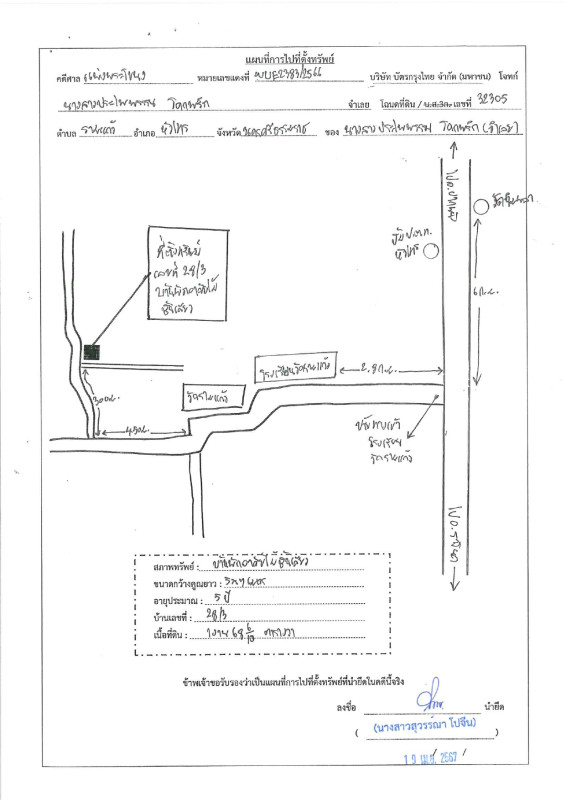 แผนที่การไปที่ตั้งทรัพย์
คดีศาล แพ่งพระโขนง หมายเลขแดงที่ ผบE2383/2566 บริษัท บัตรกรุงไทย จำกัด (มหาชน) โจทก์
นางสาวประไพพรรณ โตกพริก จำเลย โฉนดที่ดิน / น.ส.3ก. เลขที่ 32305
ตำบล รามแก้ว อำเภอ หัวไทร จังหวัด นครศรีธรรมราช ของ นางสาวประไพพรรณ โตกพริก (จำเลย)
ไปอ.ปากพนัง
ปั๊ม ป.ต.ท.
หัวไทร
ที่ตั้งทรัพย์
เลขที่ 28/3
บ้านพักอาศัยไม้
ชั้นเดียว
6 ก.ม.
โรงเรียนวัดรามแก้ว
2.8 ก.ม.
วัดรามแก้ว
300 ม.
450 ม.
โรงเรียน
วัดรามแก้ว
ไปอ.ระโนด
สภาพทรัพย์ : บ้านพักอาศัยไม้ชั้นเดียว
ขนาดกว้างคูณยาว :
อายุประมาณ : 5 ปี
บ้านเลขที่ : 28/3
เนื้อที่ดิน : 1 งาน 68 6/10 ตารางวา
ข้าพเจ้าขอรับรองว่าเป็นแผนที่การไปที่ตั้งทรัพย์ที่นำยึดในคดีนี้จริง
ลงชื่อ นำยึด
(นางสาวสุวรรณา โปจีน)
( )
19 เม.ย. 2567